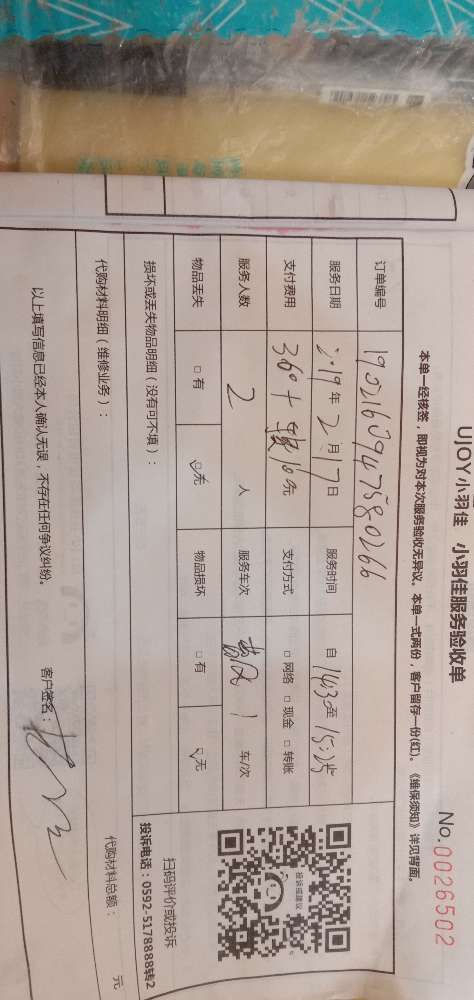 UJOY小羽佳 小羽佳服务验收单
No.0026502
本单一经核签，即视为对本次服务验收无异议。本单一式两份，客户留存一份(红)。《维保须知》详见背面。
订单编号 1902160947580266
服务日期 2019年2月17日 服务时间 自 1430至 15:25
支付费用 360+ 16元 支付方式 □网络 □现金 □转账
服务人数 2 人 服务车次 1 车/次
物品丢失 □有 ☑无 物品损坏 □有 ☑无
损坏或丢失物品明细（没有可不填）：
扫码评价或投诉
投诉电话：0592-5178888转2
投诉或建议
代购材料明细（维修业务）：
代购材料总额： 元
以上填写信息已经本人确认无误，不存在任何争议纠纷。 客户签名：